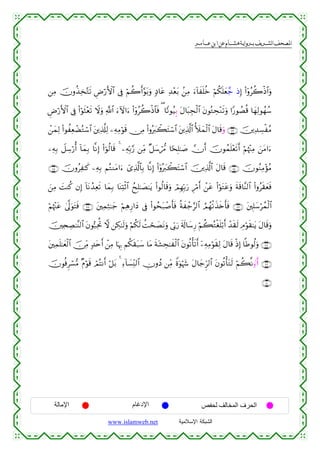 المصحف الشريف برواية هشام عن ابن عامر
وَٱذْكُرُوٓا۟ إِذْ جَعَلَكُمْ خُلَفَآءَ مِنۢ بَعْدِ عَادٍ وَبَوَّأَكُمْ فِى ٱلْأَرْضِ تَتَّخِذُونَ مِن
سُهُولِهَا قُصُورًا وَتَنْحِتُونَ ٱلْجِبَالَ بِيُوتًا ۖ فَٱذْكُرُوٓا۟ ءَالَآءَ ٱللَّهِ وَلَا تَعْثَوْا۟ فِى ٱلْأَرْضِ
مُفْسِدِينَ وَقَالَ ٱلْمَلَأُ ٱلَّذِينَ ٱسْتَكْبَرُوا۟ مِن قَوْمِهِۦ لِلَّذِينَ ٱسْتُضْعِفُوا۟ لِمَنْ
ءَامَنَ مِنْهُمْ أَتَعْلَمُونَ أَنَّ صَٰلِحًا مُّرْسَلٌ مِّن رَّبِّهِۦ ۚ قَالُوٓا۟ إِنَّا بِمَآ أُرْسِلَ بِهِۦ
مُؤْمِنُونَ قَالَ ٱلَّذِينَ ٱسْتَكْبَرُوٓا۟ إِنَّا بِٱلَّذِىٓ ءَامَنتُم بِهِۦ كَٰفِرُونَ
فَعَقَرُوا۟ ٱلنَّاقَةَ وَعَتَوْا۟ عَنْ أَمْرِ رَبِّهِمْ وَقَالُوا۟ يَٰصَٰلِحُ ٱئْتِنَا بِمَا تَعِدُنَآ إِن كُنتَ مِنَ
ٱلْمُرْسَلِينَ فَأَخَذَتْهُمُ ٱلرَّجْفَةُ فَأَصْبَحُوا۟ فِى دَارِهِمْ جَٰثِمِينَ فَتَوَلَّىٰ عَنْهُمْ
وَقَالَ يَٰقَوْمِ لَقَدْ أَبْلَغْتُكُمْ رِسَالَةَ رَبِّى وَنَصَحْتُ لَكُمْ وَلَٰكِن لَّا تُحِبُّونَ ٱلنَّٰصِحِينَ
وَلُوطًا إِذْ قَالَ لِقَوْمِهِۦٓ أَتَأْتُونَ ٱلْفَٰحِشَةَ مَا سَبَقَكُم بِهَا مِنْ أَحَدٍ مِّنَ ٱلْعَٰلَمِينَ
أَءِنَّكُمْ لَتَأْتُونَ ٱلرِّجَالَ شَهْوَةً مِّن دُونِ ٱلنِّسَآءِ ۚ بَلْ أَنتُمْ قَوْمٌ مُّسْرِفُونَ
الحرف المخالف لحفص الإدغام الإمالة
www.islamweb.net الشبكة الإسلامية